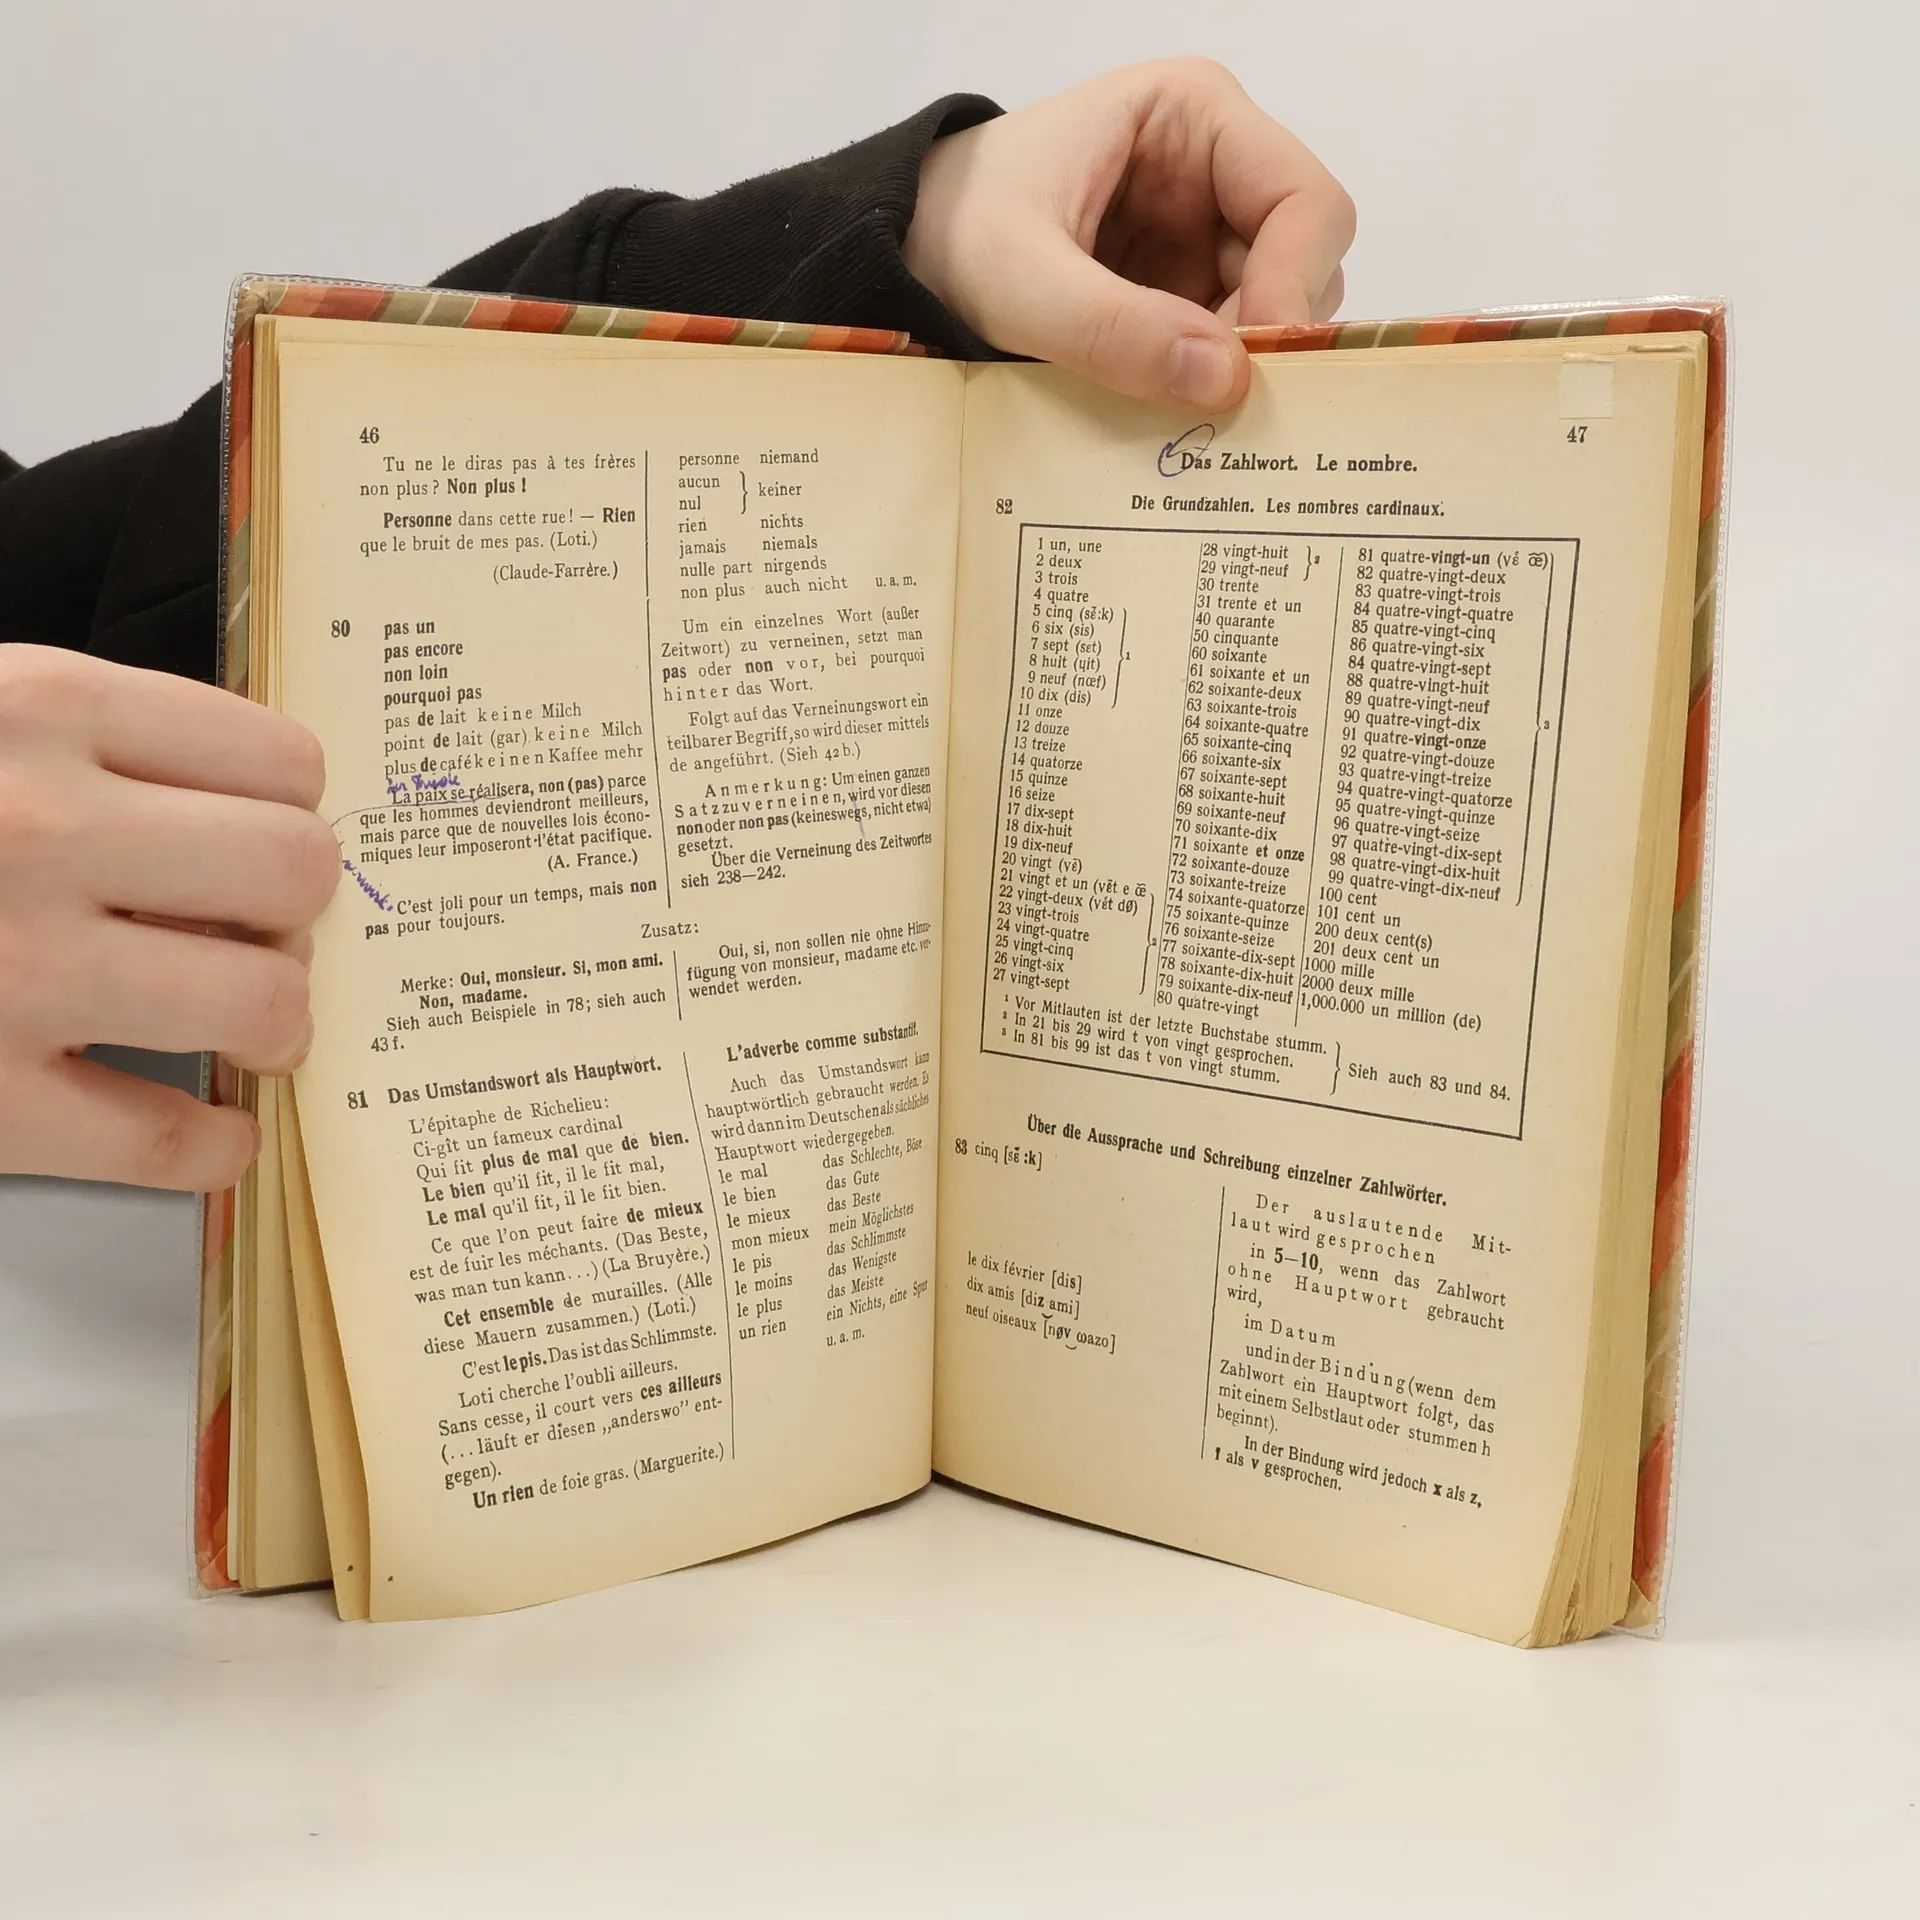 46
Tu ne le diras pas à tes frères
non plus? Non plus!
Personne dans cette rue! — Rien
que le bruit de mes pas. (Loti.)
(Claude-Farrère.)
personne niemand
aucun
nul
} keiner
rien nichts
jamais niemals
nulle part nirgends
non plus auch nicht u. a. m.
80 pas un
pas encore
non loin
pourquoi pas
pas de lait keine Milch
point de lait (gar) keine Milch
plus de café keinen Kaffee mehr
La paix se réalisera, non (pas) parce
que les hommes deviendront meilleurs,
mais parce que de nouvelles lois écono-
miques leur imposeront l'état pacifique.
(A. France.)
C'est joli pour un temps, mais non
pas pour toujours.
Um ein einzelnes Wort (außer
Zeitwort) zu verneinen, setzt man
pas oder non vor, bei pourquoi
hinter das Wort.
Folgt auf das Verneinungswort ein
teilbarer Begriff, so wird dieser mittels
de angeführt. (Sieh 42 b.)
Anmerkung: Um einen ganzen
Satz zu verneinen, wird vor diesen
non oder non pas (keineswegs, nicht etwa)
gesetzt.
Über die Verneinung des Zeitwortes
sieh 238—242.
Zusatz:
Merke: Oui, monsieur. Si, mon ami.
Non, madame.
Sieh auch Beispiele in 78; sieh auch
43 f.
Oui, si, non sollen nie ohne Hinzu-
fügung von monsieur, madame etc. ver-
wendet werden.
81 Das Umstandswort als Hauptwort.
L'adverbe comme substantif.
L'épitaphe de Richelieu:
Ci-gît un fameux cardinal
Qui fit plus de mal que de bien.
Le bien qu'il fit, il le fit mal,
Le mal qu'il fit, il le fit bien.
Ce que l'on peut faire de mieux
est de fuir les méchants. (Das Beste,
was man tun kann...) (La Bruyère.)
Cet ensemble de murailles. (Alle
diese Mauern zusammen.) (Loti.)
C'est le pis. Das ist das Schlimmste.
Loti cherche l'oubli ailleurs.
Sans cesse, il court vers ces ailleurs
(... läuft er diesen „anderswo" ent-
gegen).
Un rien de foie gras. (Marguerite.)
Auch das Umstandswort kann
hauptwörtlich gebraucht werden. Es
wird dann im Deutschen als sächliches
Hauptwort wiedergegeben.
le mal das Schlechte, Böse
le bien das Gute
le mieux das Beste
mon mieux mein Möglichstes
le pis das Schlimmste
le moins das Wenigste
le plus das Meiste
un rien ein Nichts, eine Spur
u. a. m.
47
Das Zahlwort. Le nombre.
82 Die Grundzahlen. Les nombres cardinaux.
1 un, une
2 deux
3 trois
4 quatre
5 cinq (sẽ:k)
6 six (sis)
7 sept (sɛt)
8 huit (ɥit)
9 neuf (nœf)
10 dix (dis)
} 1
11 onze
12 douze
13 treize
14 quatorze
15 quinze
16 seize
17 dix-sept
18 dix-huit
19 dix-neuf
20 vingt (vẽ)
21 vingt et un (vẽt e œ̃)
22 vingt-deux (vẽt dø)
23 vingt-trois
24 vingt-quatre
25 vingt-cinq
26 vingt-six
27 vingt-sept
} 2
28 vingt-huit
29 vingt-neuf
} 2
30 trente
31 trente et un
40 quarante
50 cinquante
60 soixante
61 soixante et un
62 soixante-deux
63 soixante-trois
64 soixante-quatre
65 soixante-cinq
66 soixante-six
67 soixante-sept
68 soixante-huit
69 soixante-neuf
70 soixante-dix
71 soixante et onze
72 soixante-douze
73 soixante-treize
74 soixante-quatorze
75 soixante-quinze
76 soixante-seize
77 soixante-dix-sept
78 soixante-dix-huit
79 soixante-dix-neuf
80 quatre-vingt
81 quatre-vingt-un (vẽ œ̃)
82 quatre-vingt-deux
83 quatre-vingt-trois
84 quatre-vingt-quatre
85 quatre-vingt-cinq
86 quatre-vingt-six
84 quatre-vingt-sept
88 quatre-vingt-huit
89 quatre-vingt-neuf
90 quatre-vingt-dix
91 quatre-vingt-onze
92 quatre-vingt-douze
93 quatre-vingt-treize
94 quatre-vingt-quatorze
95 quatre-vingt-quinze
96 quatre-vingt-seize
97 quatre-vingt-dix-sept
98 quatre-vingt-dix-huit
99 quatre-vingt-dix-neuf
} 3
100 cent
101 cent un
200 deux cent(s)
201 deux cent un
1000 mille
2000 deux mille
1,000.000 un million (de)
1 Vor Mitlauten ist der letzte Buchstabe stumm.
2 In 21 bis 29 wird t von vingt gesprochen.
3 In 81 bis 99 ist das t von vingt stumm.
} Sieh auch 83 und 84.
Über die Aussprache und Schreibung einzelner Zahlwörter.
83 cinq [sẽ:k]
le dix février [dis]
dix amis [diz ami]
neuf oiseaux [nøv ωazo]
Der auslautende Mit-
laut wird gesprochen
in 5—10, wenn das Zahlwort
ohne Hauptwort gebraucht
wird,
im Datum
und in der Bindung (wenn dem
Zahlwort ein Hauptwort folgt, das
mit einem Selbstlaut oder stummen h
beginnt).
In der Bindung wird jedoch x als z,
f als v gesprochen.